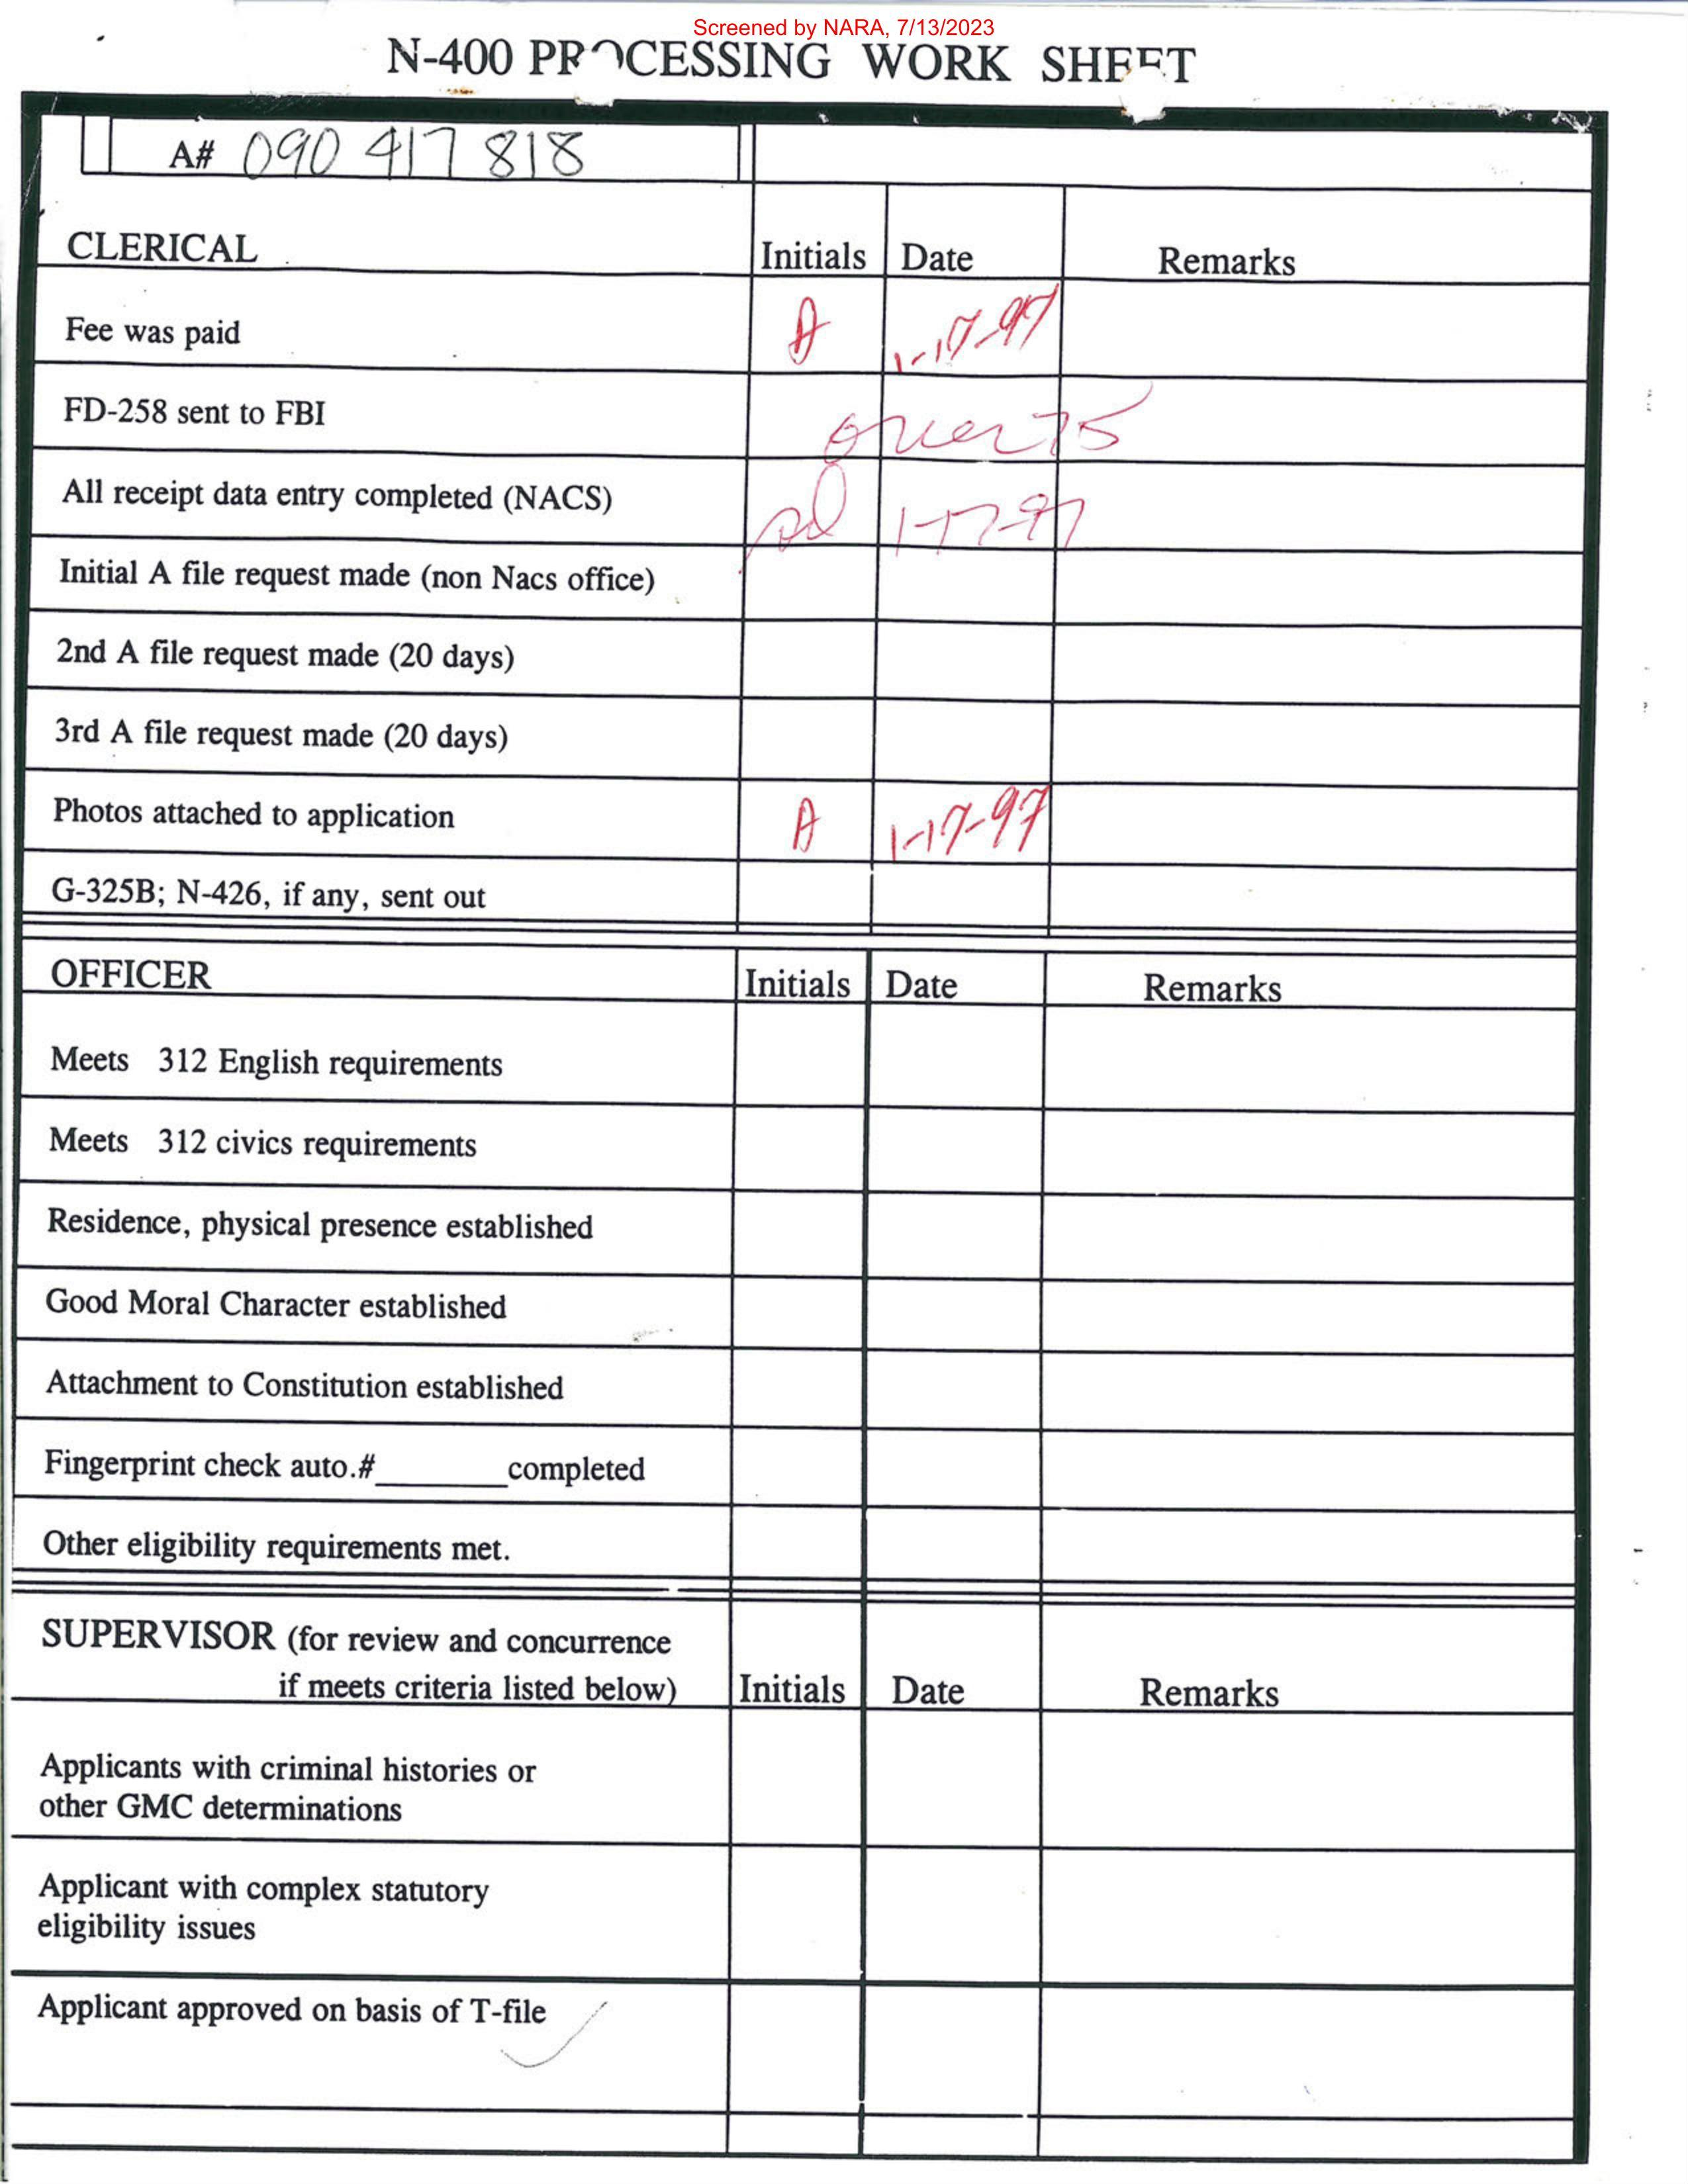 Screened by NARA, 7/13/2023
N-400 PROCESSING WORK SHEET
A# 090 417 818
CLERICAL Initials Date Remarks
Fee was paid A 1-17-97
FD-258 sent to FBI over 75
All receipt data entry completed (NACS) 1-17-97
Initial A file request made (non Nacs office)
2nd A file request made (20 days)
3rd A file request made (20 days)
Photos attached to application A 1-17-97
G-325B; N-426, if any, sent out
OFFICER Initials Date Remarks
Meets 312 English requirements
Meets 312 civics requirements
Residence, physical presence established
Good Moral Character established
Attachment to Constitution established
Fingerprint check auto.#________completed
Other eligibility requirements met.
SUPERVISOR (for review and concurrence
if meets criteria listed below) Initials Date Remarks
Applicants with criminal histories or
other GMC determinations
Applicant with complex statutory
eligibility issues
Applicant approved on basis of T-file